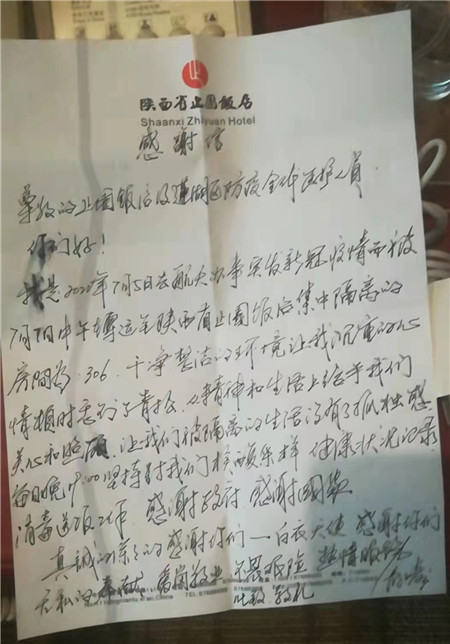 陕西省止園飯店
Shaanxi Zhiyuan Hotel
感谢信
尊敬的止園饭店及莲湖区防疫全体医护人员
你们好！
我是2022年7月5日去航天办事突发新冠疫情而被
7月7日中午转运至陕西省止園饭店集中隔离的
房间为·306．干净整洁的环境让我沉重的心
情顿时 从精神和生活上给予我们
关心和照顾，让我们被隔离的生活没有了孤独感
每日晚 坚持对我们核酸采样 健康状况记录
消毒送饭工作 感谢政府 感谢国家
真诚的 感谢你们一白衣天使 感谢你们
无私的奉献 爱岗敬业 不畏艰险 热情服务
此致 敬礼